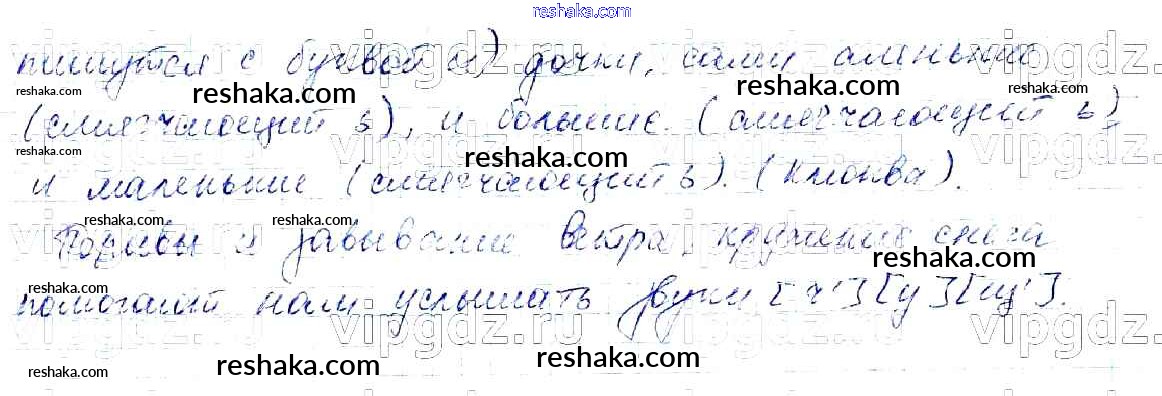 reshaka.com
пишутся с буквой и) дочки, сами аленькие
reshaka.com reshaka.com reshaka.com
(смягчающий ь), и большие. (смягчающий ь)
reshaka.com reshaka.com
и маленькие (смягчающий ь). (Клюква).
reshaka.com reshaka.com
Порывы и завывание ветра, кружение снега
reshaka.com
помогают нам услышать звуки [ч'] [у] [щ'].
reshaka.com reshaka.com reshaka.com reshaka.com
vipgdz.ru vipgdz.ru vipgdz.ru vipgdz.ru